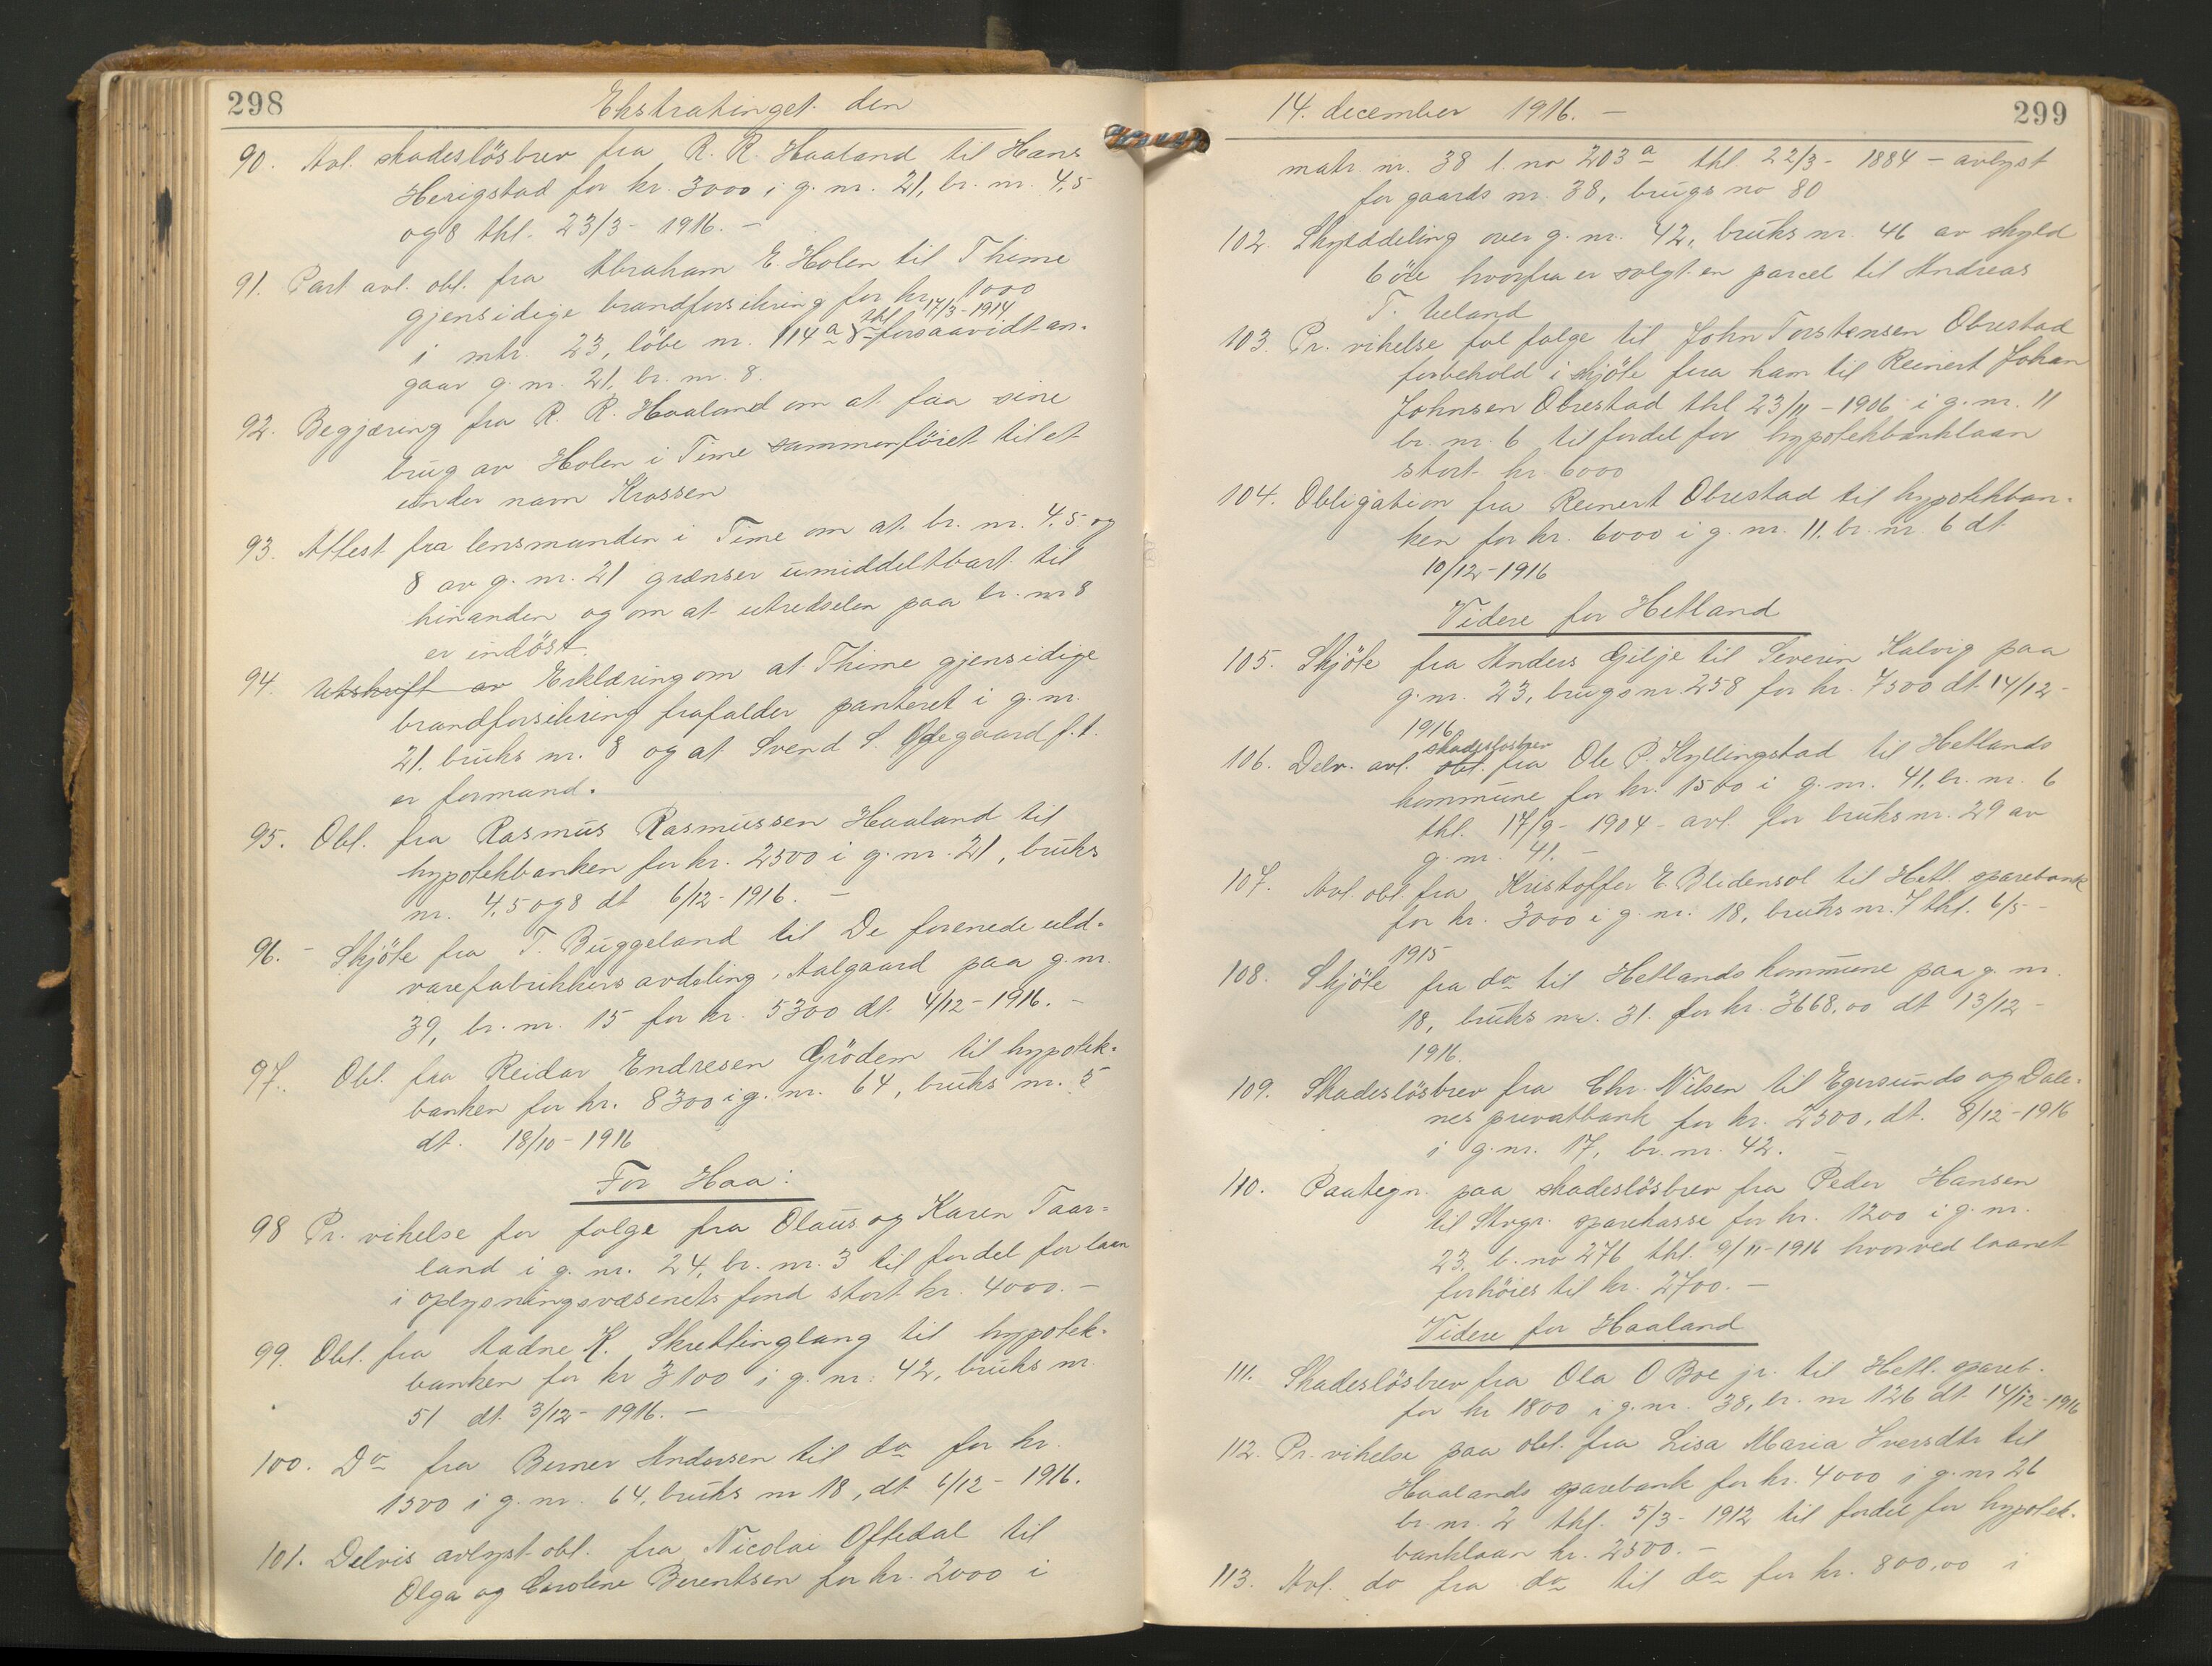 298
Ekstratinget den
90. Avl. skadeslösbrev fra R. R. Haaland til Hans
Herigstad for kr. 3000 i g. nr. 21, br. nr. 4,5
og 8 thl. 23/3 - 1916. -
91. Part avl. obl. fra Abraham E. Holen til Thime
gjensidige brandforsikring for kr. 1000
i mtr. 23, löbe nr. 114 a thl 17/3 - 1914 forsaavidt an-
gaar g. nr. 21, br. nr. 8.
92. Begjæring fra R. R. Haaland om at faa sine
brug av Holen i Time sammenföiet til et
under navn Krossen
93. Attest fra lensmanden i Time om at br. nr. 4, 5 og
8 av g. nr. 21 grænser umiddeltbart til
hinanden og om at utredselen paa br. nr 8
er indöst.
94. Utskrift av Erklæring om at Thime gjensidige
brandforsikring frafalder panteret i g. nr.
21. bruks nr. 8 og at Svend S. Ödegaard f. t.
er formand.
95. Obl. fra Rasmus Rasmussen Haaland til
hypotekbanken for kr. 2500 i g. nr. 21, bruks
nr. 4,5 og 8 dt 6/12 - 1916. -
96. - Skjöte fra T. Buggeland til De forenede uld-
varefabrikkers avdeling, Aalgaard paa g. nr.
39, br. nr. 15 for kr. 5300 dt. 4/12 - 1916. -
97. Obl. fra Reidar Endresen Grödem til hypotek-
banken for kr. 8300 i g. nr. 64, bruks nr. 5
dt. 18/10 - 1916
For Haa:
98 Pr. vikelse for folge fra Olaus og Karen Taar-
land i g. nr. 24, br. nr. 3 til fordel for laan
i oplysningsvæsenets fond stort kr. 4000. -
99. Obl. fra Aadne K. Skretlinglang til hypotek-
banken for kr 3100 i g. nr. 42, bruks nr.
51 dt. 3/12 - 1916. -
100. Do fra Berner Andersen til do for kr.
1500 i g. nr. 64, bruks nr 18, dt 6/12 - 1916.
101. Delvis avlyst obl. fra Nicolai Oftedal til
Olga og Carolene Berentsen for kr. 2000 i
14. december 1916. -
299
matr. nr. 38 l. no 203 a thl. 22/3 - 1884 - avlyst
for gaards nr. 38, brugs no 80
102. Skylddeling over g. nr. 42, bruks nr. 46 av skyld
6 öre hvorfra er solgt en parcel til Andreas
T. Ueland
103. Pr. vikelse fol folge til John Torstensen Obrestad
forbehold i skjöte fra ham til Reinert Johan
Johnsen Obrestad thl 23/11 - 1906 i g. nr. 11
br. nr. 6 til fordel for hypotekbanklaan
stort kr. 6000
104. Obligation fra Reinert Obrestad til hypotekban-
ken for kr. 6000 i g. nr. 11. br. nr 6 dt
10/12 - 1916
Videre for Hetland
105. Skjöte fra Anders Gilje til Severin Kalvig paa
g. nr. 23, brugs nr. 258 for kr. 7500 dt. 14/12 -
1916
106. Delv. avl. obl. skadeslosbrev fra Ole P. Kyllingstad til Hetlands
kommune for kr. 1500 i g. nr. 41, br. nr. 6
thl. 17/9 - 1904 - avl. for bruks nr. 29 av
g. nr. 41. -
107. Avl. obl. fra Kristoffer E. Blidensol til Hetl. sparebank
for kr. 3000 i g. nr. 18, bruks nr. 7 thl. 6/5 -
1915
108. Skjöte fra do til Hetlands kommune paa g. nr.
18, bruks nr. 31. for kr. 3668,00 dt 13/12 -
1916.
109. Skadeslösbrev fra Chr. Nilsen til Egersunds og Dale-
nes privatbank for kr. 2500, dt. 8/12 - 1916
i g. nr. 17, br. nr. 42. -
110. Paategn. paa skadeslösbrev fra Peder Hansen
til Stvgr. sparekasse for kr. 1200 i g. nr.
23, b. no 276 thl. 9/11 - 1916 hvorved laanet
forhöies til kr. 2700. -
Videre for Haaland
111. Skadeslösbrev fra Ola O Boe jr. til Hetl. spareb.
for kr 1800 i g. nr. 38, br. nr 126 dt 14/12 - 1916
112. Pr. vikelse paa obl. fra Lisa Maria Iversdtr til
Haalands sparebank for kr. 4000 i g. nr 26
br. nr. 2 thl. 5/3 - 1912 til fordel for hypotek-
banklaan kr. 2500. -
113. Avl. do fra do til do for kr. 800,00 i